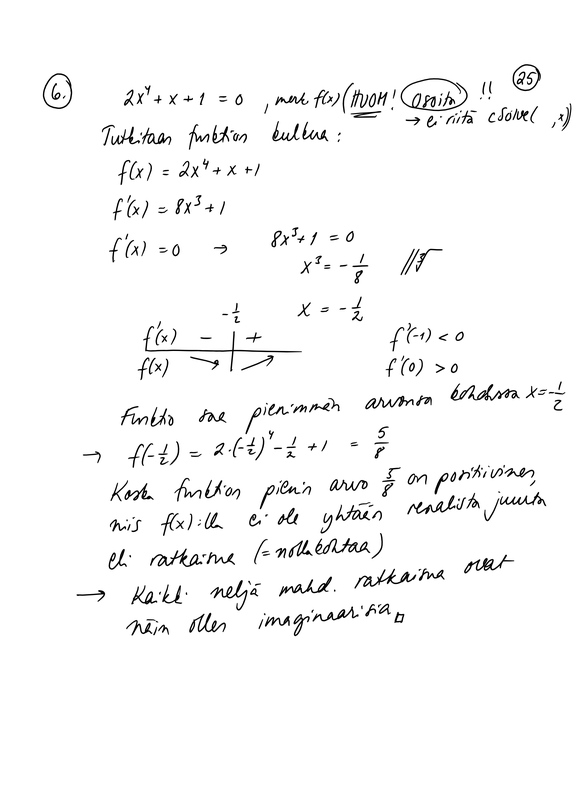 6.
25
2x⁴ + x + 1 = 0 , merk f(x) (HUOM! Osoita !!
→ ei riitä csolve( ,x))
Tutkitaan funktion kulkua:
f(x) = 2x⁴ + x + 1
f'(x) = 8x³ + 1
f'(x) = 0 → 8x³ + 1 = 0
x³ = -1/8 //∛
x = -1/2
-1/2
f'(x) - + f'(-1) < 0
f(x) ↘ ↗ f'(0) > 0
Funktio saa pienimmän arvonsa kohdassa x = -1/2
→ f(-1/2) = 2·(-1/2)⁴ - 1/2 + 1 = 5/8
Koska funktion pienin arvo 5/8 on positiivinen,
niin f(x):llä ei ole yhtään reaalista juurta
eli ratkaisua (= nollakohtaa)
→ Kaikki neljä mahd. ratkaisua ovat
näin ollen imaginaarisia □